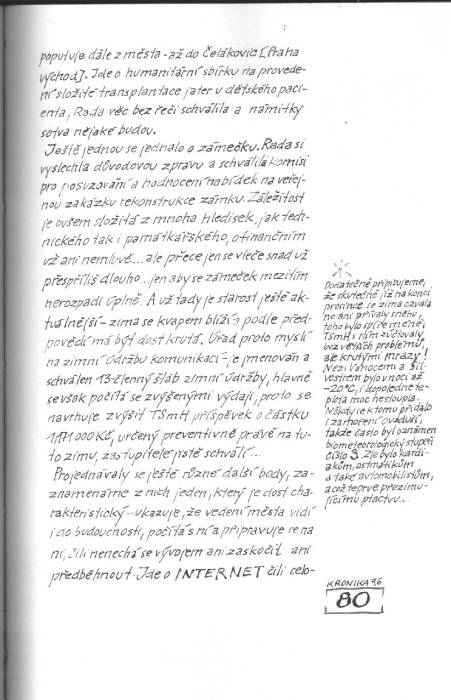 poputuje dále z města - až do Čelákovic [Praha
východ]. Jde o humanitární sbírku na provede-
ní složité transplantace jater u dětského paci-
enta, Rada věc bez řečí schválila a námitky
sotva nějaké budou.
Ještě jednou se jednalo o zámečku. Rada si
vyslechla důvodovou zprávu a schválila komisi
pro posuzování a hodnocení nabídek na veřej-
nou zakázku rekonstrukce zámku. Záležitost
je ovšem složitá z mnoha hledisek, jak tech-
nického tak i památkářského, o finančním
už ani nemluvě... ale přece jen se vleče snad už
přespříliš dlouho... jen aby se zámeček mezitím
nerozpadl úplně. A už tady je starost ještě ak-
tuálnější - zima se kvapem blíží a podle před-
povědí má být dost krutá. Úřad proto myslí
na zimní údržbu komunikací - je jmenován a
schválen 13-členný štáb zimní údržby, hlavně
se však počítá se zvýšenými výdaji, proto se
navrhuje zvýšit TSmH příspěvek o částku
1111 000 Kč, určený preventivně právě na tu-
to zimu, zastupitelé jistě schválí...
Projednávaly se ještě různé další body, za-
znamenáme z nich jeden, který je dost cha-
rakteristický - ukazuje, že vedení města vidí
i do budoucnosti, počítá s ní a připravuje se na
ni, čili nenechá se vývojem ani zaskočit ani
předběhnout. Jde o INTERNET čili celo-
Dodatečně připisujeme,
že skutečně již na konci
prosince se zima ozvala,
ne ani přívaly sněhu,
toho bylo spíše méně,
TSmH s ním zúčtovaly
bez větších problémů,
ale krutými mrazy!
Mezi Vánocemi a Sil-
vestrem bylo v noci až
-20°C, i dopoledne te-
plota moc nestoupla.
Někdy se k tomu přidalo
i zamoření ovzduší,
takže často byl oznámen
biometeorologický stupeň
číslo 3. Zle bylo kardi-
akům, astmatikům
a také automobilistům,
a což teprve přezimu-
jícímu ptactvu...
KRONIKA 96
80